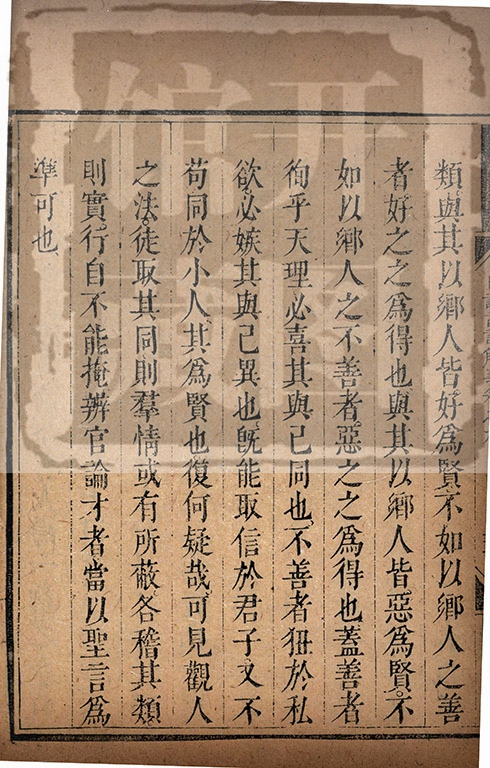 類與其以鄉人皆好爲賢不如以鄉人之善
者好之之爲得也與其以鄉人皆惡爲賢不
如以鄉人之不善者惡之之爲得也蓋善者
徇乎天理必喜其與己同也不善者狃於私
欲必嫉其與己異也旣能取信於君子又不
苟同於小人其爲賢也復何疑哉可見觀人
之法徒取其同則羣情或有所蔽各稽其類
則實行自不能掩辨官論才者當以聖言爲
準可也